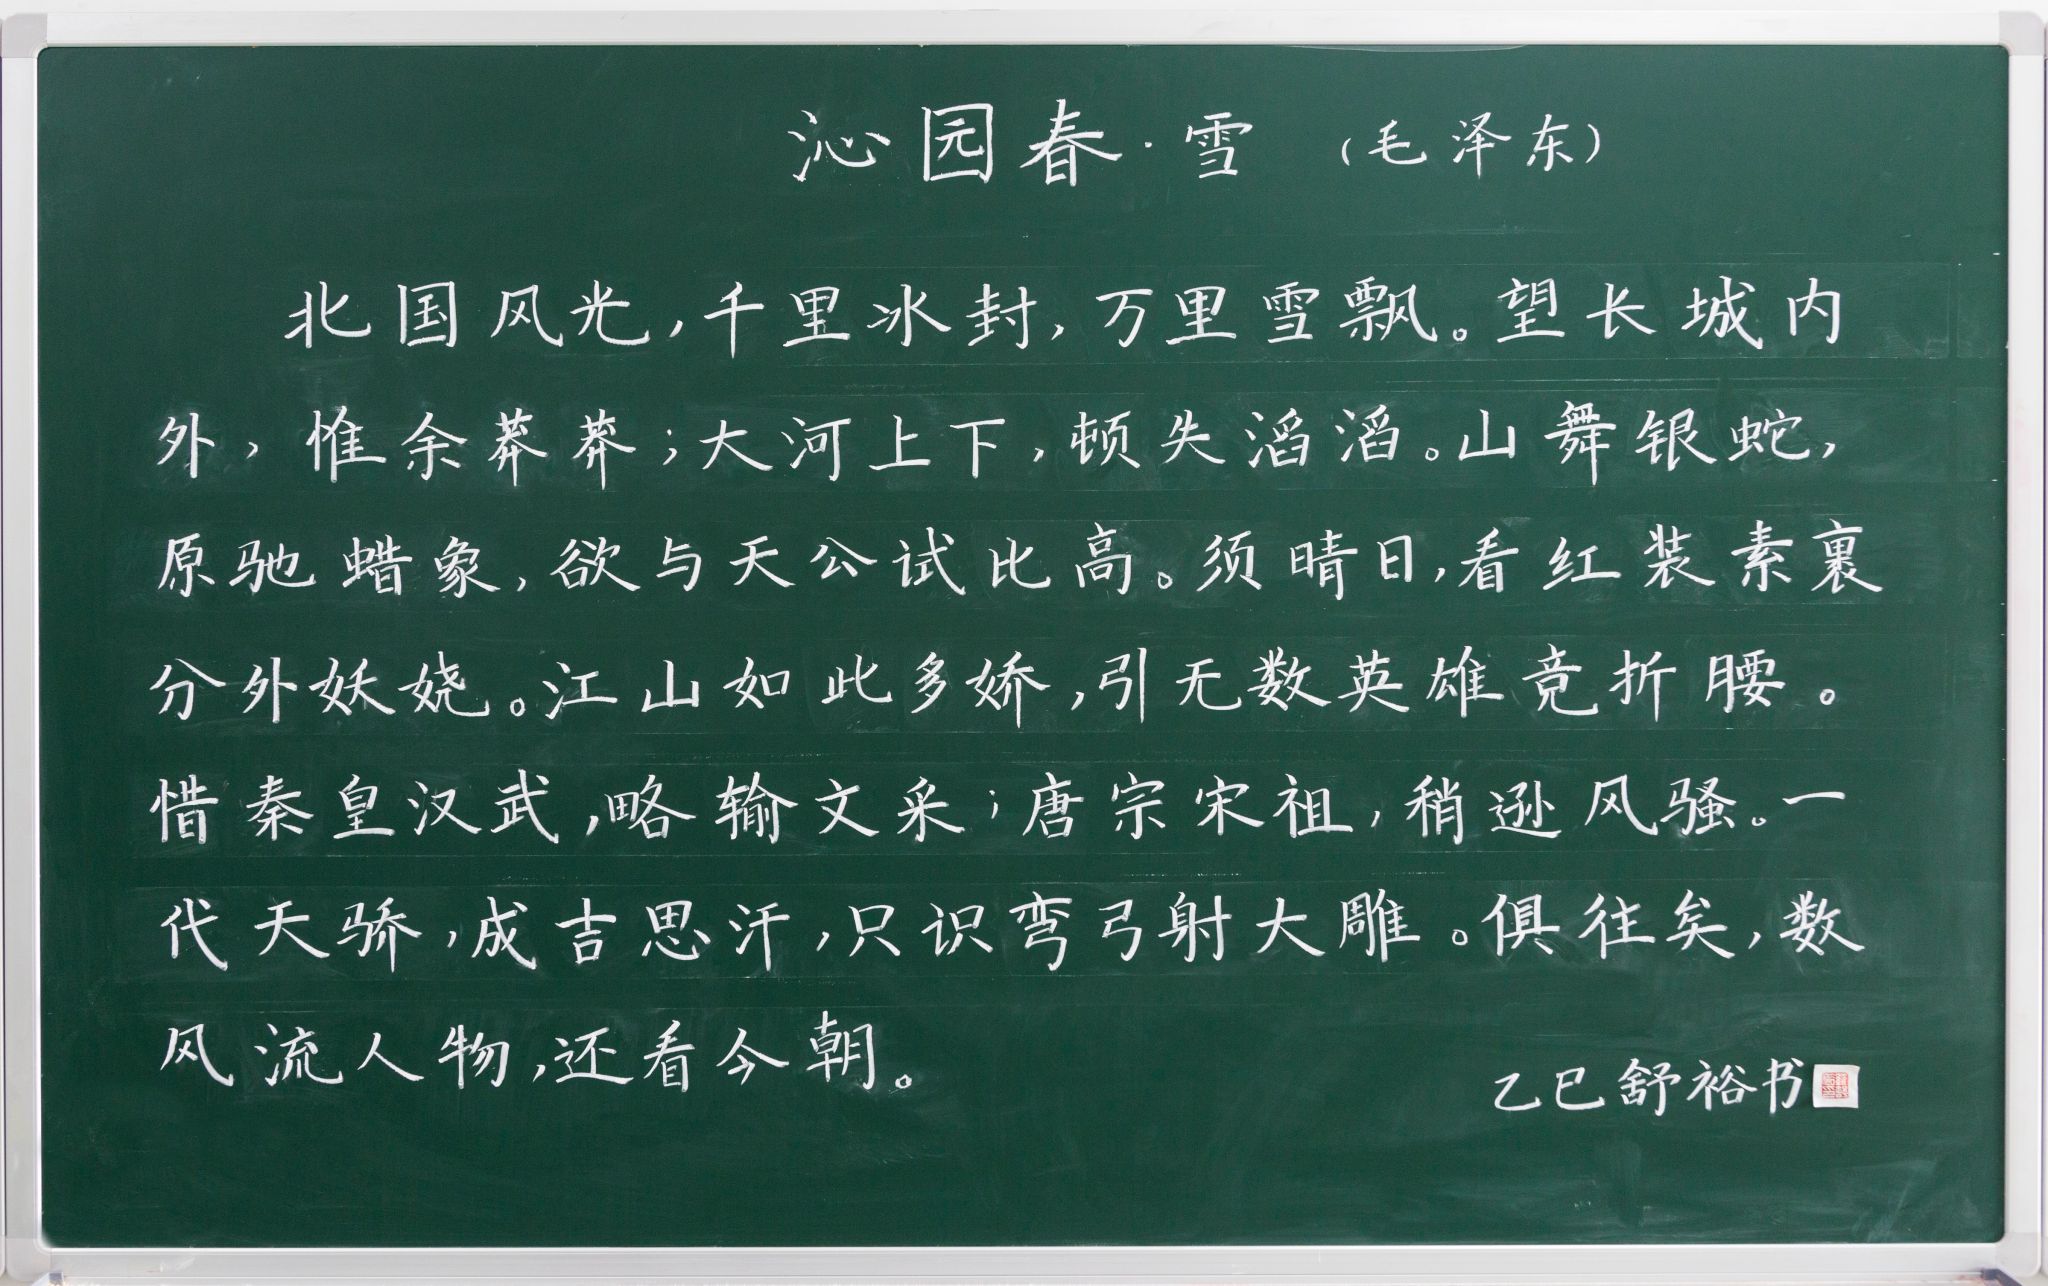 沁园春·雪 （毛泽东）
北国风光，千里冰封，万里雪飘。望长城内
外，惟余莽莽；大河上下，顿失滔滔。山舞银蛇，
原驰蜡象，欲与天公试比高。须晴日，看红装素裹
分外妖娆。江山如此多娇，引无数英雄竞折腰。
惜秦皇汉武，略输文采；唐宗宋祖，稍逊风骚。一
代天骄，成吉思汗，只识弯弓射大雕。俱往矣，数
风流人物，还看今朝。
乙巳舒裕书